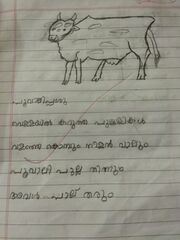 പൂവാലിപ്പശു
വെള്ളയിൽ കറുത്ത പുള്ളികൾ
വളഞ്ഞ കൊമ്പും നീളൻ വാലും
പൂവാലി പുല്ല് തിന്നും
അവൾ പാല് തരും